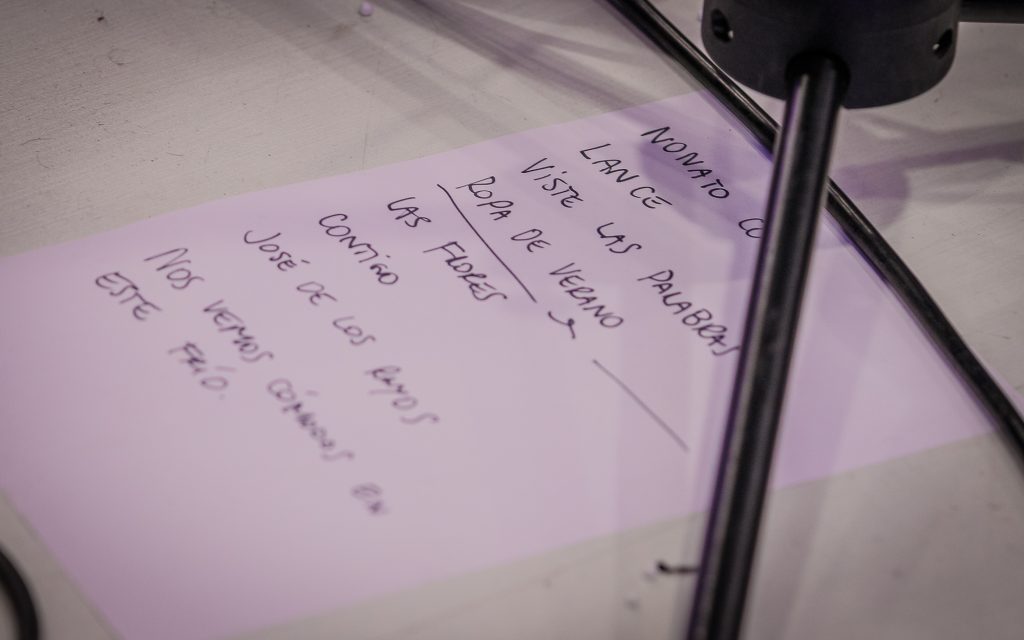 NONATO CO
LANCE
VISTE LAS PALABRAS
ROPA DE VERANO
LAS FLORES
CONTIGO
JOSÉ DE LOS RAYOS
NOS VEMOS CÓMODOS EN
ESTE FRÍO.